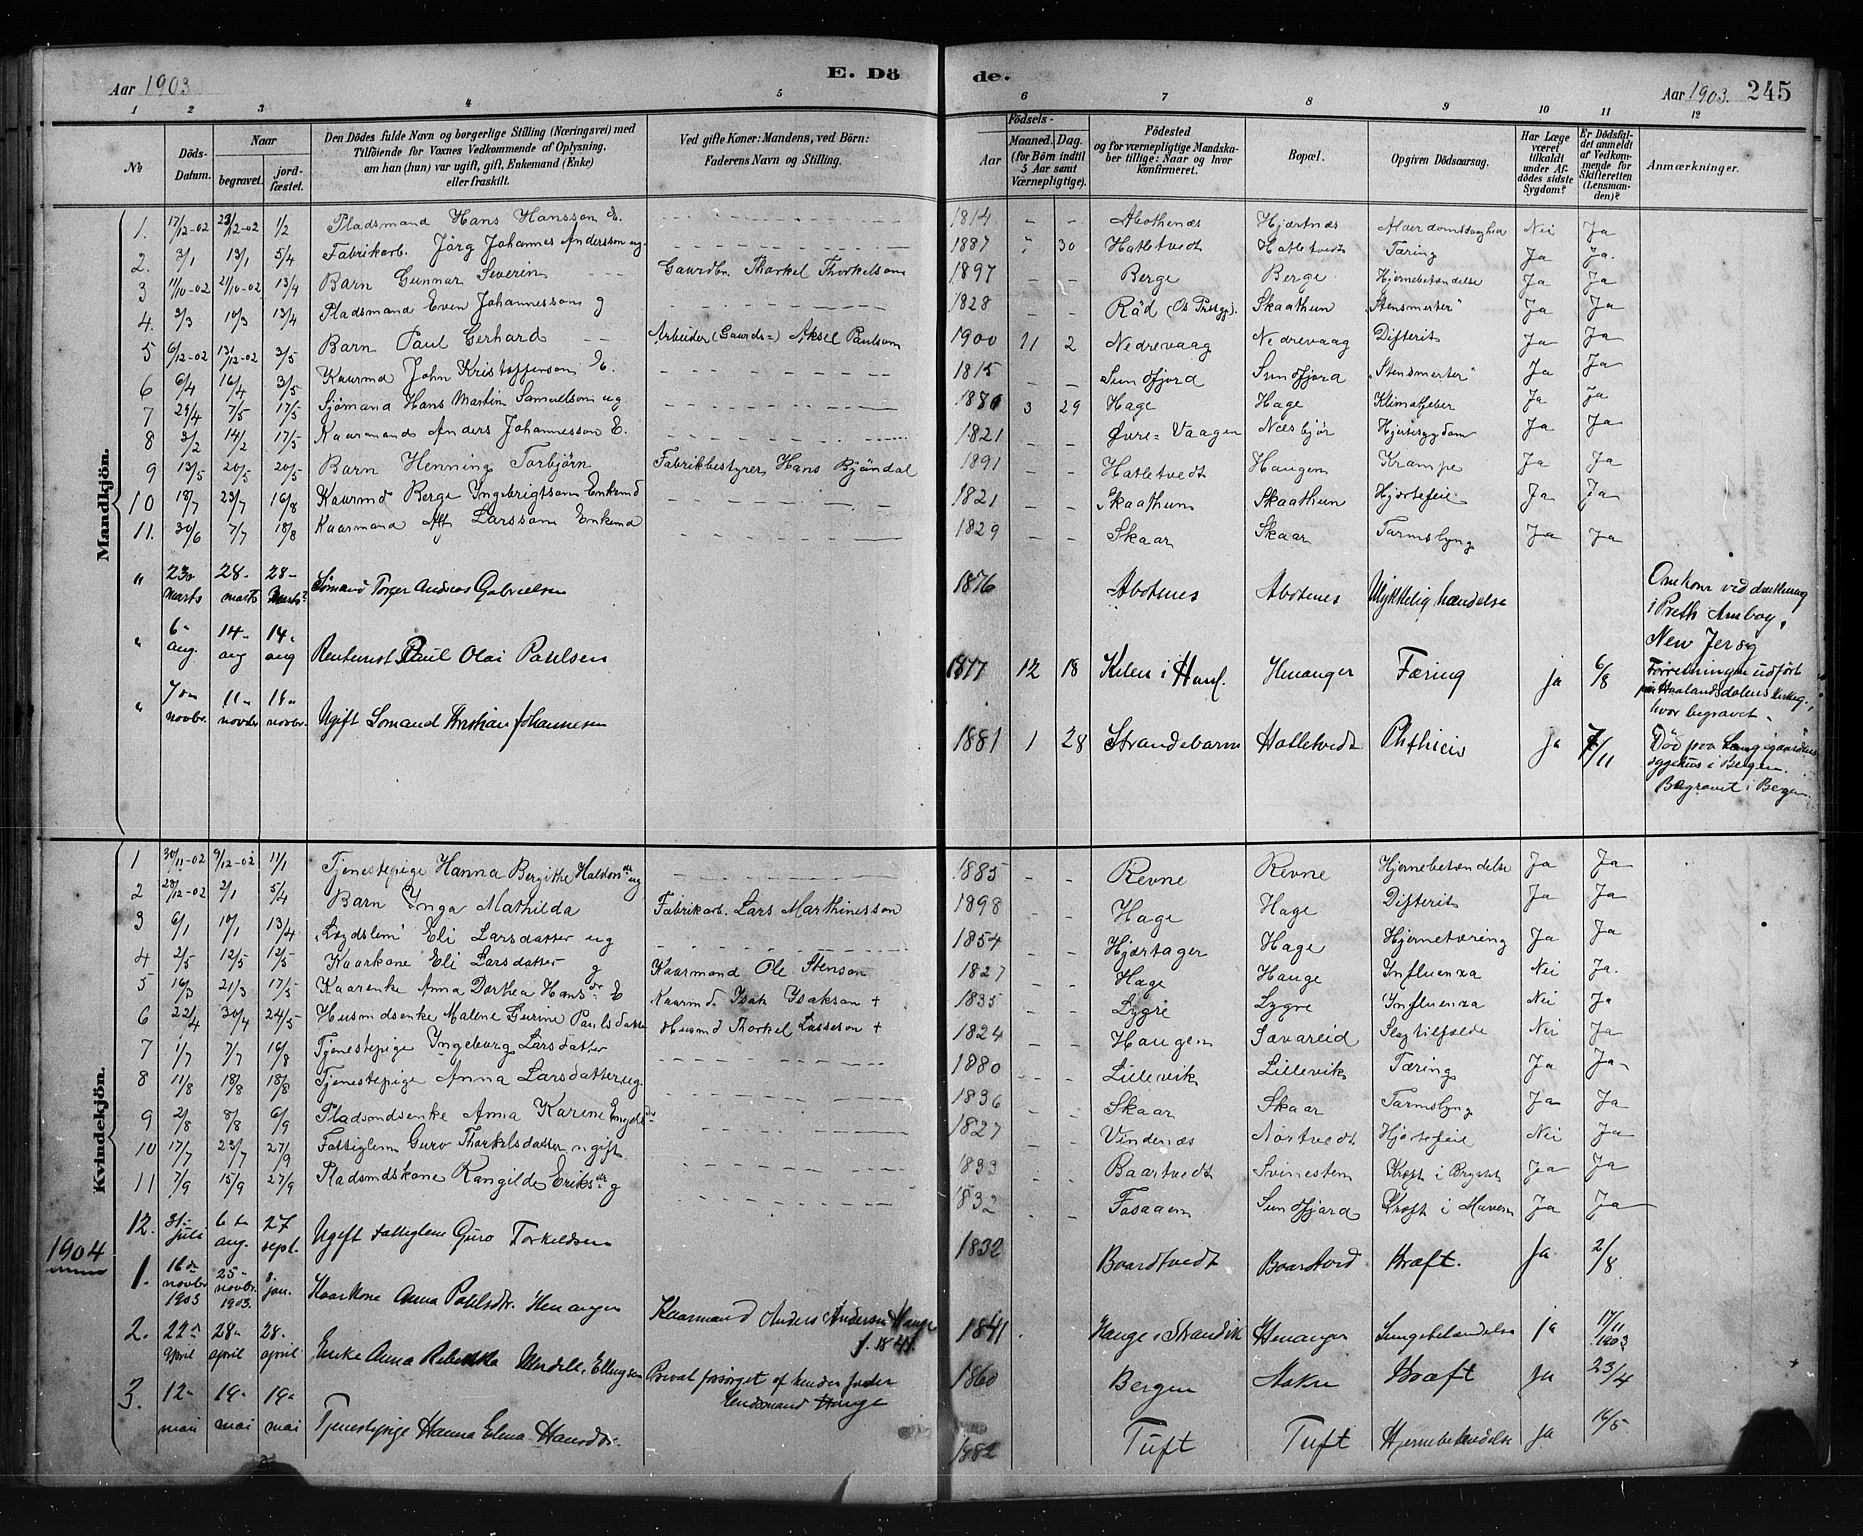 Aar 1903
E. Dö
de.
Aar 1903. 245
1 2 3 4 5 6 7 8 9 10 11 12
No
Döds-Datum.
Naar
begravet.
jord-fæstet.
Den Dödes fulde Navn og borgerlige Stilling (Næringsvei) med
Tilföiende for Voxnes Vedkommende af Oplysning,
om han (hun) var ugift, gift, Enkemand (Enke)
eller fraskilt.
Ved gifte Koner: Mandens, ved Börn:
Faderens Navn og Stilling.
Födsels-
Aar
Maaned. Dag.
(for Börn indtil
5 Aar samt
Værnepligtige).
Födested
og for værnepligtige Mandska-
ber tillige: Naar og hvor
konfirmeret.
Bopæl.
Opgiven Dödsaarsag.
Har Læge
været
tilkaldt
under Af-
dödes sidste
Sygdom?
Er Dödsfal-
det anmeldt
af Vedkom-
mende for
Skifteretten
(Lensman-
den)?
Anmærkninger.
Mandkjön.
1. 17/12-02 23/12-02 1/2 Pladsmand Hans Hansson E. 1814 Abothenæs Hjærtnæs Alderdomssvaghed Nei Ja
2. 3/1 13/1 5/4 Fabrikarb. Jörg Johannes Andersson ug 1887 7 30 Hatletvedt Hatletvedt Tæring Ja Ja.
3 11/10-02 21/10-02 13/4 Barn Gunnar Severin Gaardbr. Thorkel Thorkelson 1897 Berge Berge Hjernebetændelse Ja Ja
4. 3/3 10/3 13/4 Pladsmand Even Johannesson g 1828 Räd (Os Prestgj). Skaathun "Stensmerter" Ja Ja
5 6/12-02 13/12-02 3/5 Barn Paul Gerhard Arbeider (Gaards=) Aksel Paulson 1900 11 2 Nedrevaag Nedrevaag Difterit Ja Ja
6 6/4 16/4 3/5 Kaarmd John Kristoffersson E. 1815 Sundfjord Sundfjord "Stensmerter" Ja Ja
7 29/4 7/5 17/5 Sjömand Hans Martin Samuelson ug 1880 3 29 Hage Hage Klimatfeber Ja Ja
8 3/2 14/2 17/5 Kaarmand Anders Johannesson E. 1821 Øvre=Vaagen Næsbjör Hjertesygdom Ja Ja
9 13/5 20/5 20/5 Barn Henning Torbjörn Fabrikbestyrer Hans Bjöndal 1891 Hatletvedt Haugen Krampe Ja Ja
10 18/7 23/7 16/8 Kaarmd Berge Ingebrigtson Enkemd 1821 Skaathun Skaathun Hjertefeil Ja Ja
11. 30/6 7/7 18/8 Kaarmand Larsson Enkemd 1829 Skaar Skaar Tarmslyng Ja Ja
" 23. marts 28. marts 28. marts Sömand Torger Andreas Gabrielsen 1876 Abotnes Abotnes Ulykkelig hændelse
Omkom ved drukning
i Perth Amboy,
New Jersey
" 6. aug. 14. aug 14. aug Rentenist Paul Olai Paulsen 1877 12 18 Kilen i Haal. Henanger Tæring ja 6/8
Forretningen udfört
paa Haalandsdalens kirkeg.,
hvor begravet.
" 7de novbr. 11. novbr 11. novbr. Ugift Sömand Kristian Johannesen 1881 1 28 Strandebarm Hatletvedt Phthisis ja 7/11
Död paa Lungegaardens
sygehus i Bergen.
Begravet i Bergen.
Kvindekjön.
1 30/11-02 9/12-02 11/1 Tjenestepige Hanna Bergitte Halvorsdr ug 1885 Revne Revne Hjernebetændelse Ja Ja
2 28/12-02 2/1 5/4 Barn Inga Mathilda Fabrikarb. Lars Marthinesson 1898 Hage Hage Difterit Ja Ja
3 6/1 10/1 13/4 "Lægdslem" Eli Larsdatter ug 1854 Hjærtager Hage Hjernetæring Ja Ja
4 2/5 12/5 12/5 Kaarkone Eli Larsdatter g Kaarmand Ole Stenson 1827 Hage Hauge Influenza Nei Ja.
5 16/3 21/3 17/5 Kaarenke Anna Dorthea Hansdr E Kaarmd Isak Isakson + 1835 Lygre Lygre Influenza Nei Ja
6 22/4 30/4 24/5 Husmdsenke Malene Gurine Paulsdatter Husmd Thorkel Lasseson + 1824 Haugen Sævareid Slagtilfælde Nei Ja
7 1/7 7/7 16/8 Tjenestepige Ingeborg Larsdatter 1880 Lillevik Lillevik Tæring Ja Ja
8 11/8 18/8 18/8 Tjenestepige Anna Larsdatter ug. 1836 Skaar Skaar Tarmslyng Ja Ja
9 2/8 8/8 6/9 Pladsmdsenke Anna Karine Engelsdr 1827 Vindenæs Nortvedt Hjertefeil Nei Ja
10 17/7 23/7 27/9 Fattiglem Guro Thorkelsdatter ugift. 1833 Baartvedt Svinesten Kræft i Brystet Ja Ja
11 7/9 15/9 27/9 Pladsmdskone Rangilde Eriksdr g 1832 Fosaaen Sundfjord Kræft i Maven Ja Ja
12. 31. juli 6te aug. 27 sept. Ugift fattiglem Guro Torkeldsen 1832 Baardtvedt Baardtvd Kræft. Ja 2/8
1904
1. 16de novbr 1903 25. novbr. 1903. 3. jan. Kaarkone Anna Pahlsdtr. Henanger Kaarmand Anders Andersen Hauge f. 1841 1841 Hauge i Strandvik Henanger Lungebetændelse ja 17/11 1903
2. 22. april 28. april 28. april Enke Anna Rebekka Ellingsen Privat forsørget af hendes fader Lendsmand Hauge 1860 Bergen Aakre Kræft Ja 23/4
3. 12. mai 19. mai 19. mai Tjenestepige Hanna Elena Hansdtr. 1882 Tuft Tuft Hjernebetændelse Ja 16/5.